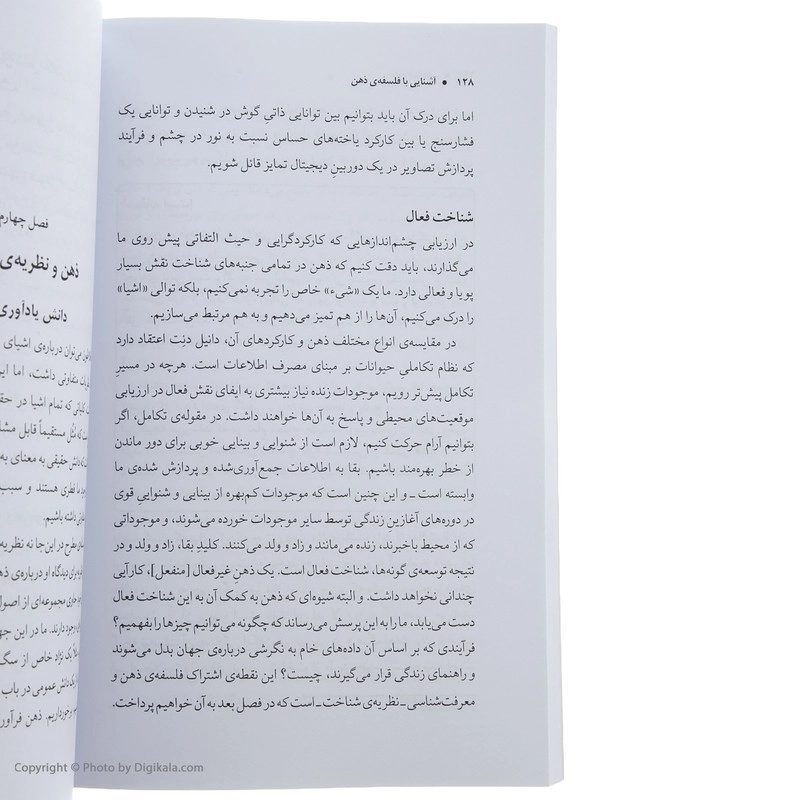 ۱۲۸ ● آشنایی با فلسفه‌ی ذهن
اما برای درک آن باید بتوانیم بین توانایی ذاتیِ گوش در شنیدن و توانایی یک
فشارسنج یا بین کارکرد یاخته‌های حساس نسبت به نور در چشم و فرآیند
پردازش تصاویر در یک دوربینِ دیجیتال تمایز قائل شویم.
شناخت فعال
در ارزیابی چشم‌اندازهایی که کارکردگرایی و حیث التفاتی پیش روی ما
می‌گذارند، باید دقت کنیم که ذهن در تمامی جنبه‌های شناخت نقش بسیار
پویا و فعالی دارد. ما یک «شیء» خاص را تجربه نمی‌کنیم، بلکه توالی «اشیا»
را درک می‌کنیم، آن‌ها را از هم تمیز می‌دهیم و به هم مرتبط می‌سازیم.
در مقایسه‌ی انواع مختلف ذهن و کارکردهای آن، دانیل دنِت اعتقاد دارد
که نظام تکاملیِ حیوانات بر مبنای مصرف اطلاعات است. هرچه در مسیرِ
تکامل پیش‌تر رویم، موجودات زنده نیاز بیشتری به ایفای نقش فعال در ارزیابی
موقعیت‌های محیطی و پاسخ به آن‌ها خواهند داشت. در مقوله‌ی تکامل، اگر
بتوانیم آرام حرکت کنیم، لازم است از شنوایی و بینایی خوبی برای دور ماندن
از خطر بهره‌مند باشیم. بقا به اطلاعات جمع‌آوری‌شده و پردازش شده‌ی ما
وابسته است ـ و این چنین است که موجودات کم‌بهره از بینایی و شنواییِ قوی
در دوره‌های آغازینِ زندگی توسط سایر موجودات خورده می‌شوند، و موجوداتی
که از محیط باخبرند، زنده می‌مانند و زاد و ولد می‌کنند. کلیدِ بقا، زاد و ولد و در
نتیجه توسعه‌ی گونه‌ها، شناخت فعال است. یک ذهنِ غیرفعال [منفعل]، کارآیی
چندانی نخواهد داشت. و البته شیوه‌ای که ذهن به کمک آن به این شناخت فعال
دست می‌یابد، ما را به این پرسش می‌رساند که چگونه می‌توانیم چیزها را بفهمیم؟
فرآیندی که بر اساس آن داده‌های خام به نگرشی درباره‌ی جهان بدل می‌شوند
و راهنمای زندگی قرار می‌گیرند، چیست؟ این نقطه‌ی اشتراک فلسفه‌ی ذهن و
معرفت‌شناسی ـ نظریه‌ی شناخت ـ است که در فصل بعد به آن خواهیم پرداخت.
فصل چهارم
ذهن و نظریه‌ی
دانش یادآوری
می‌توان درباره‌ی اشیای
متفاوتی داشت، اما
که تمام اشیا در
مستقیماً قابل
حقیقی به معنای به
فطری هستند و سبب
داشته باشیم.
مطرح در این جا نه نظریه
دیدگاه او درباره‌ی
مجموعه‌ای از اصول
وجود دارند. ما در این
یک نژاد خاص از سگ
دانش عمومی در باب
برخورداریم. ذهن
Copyright © Photo by Digikala.com